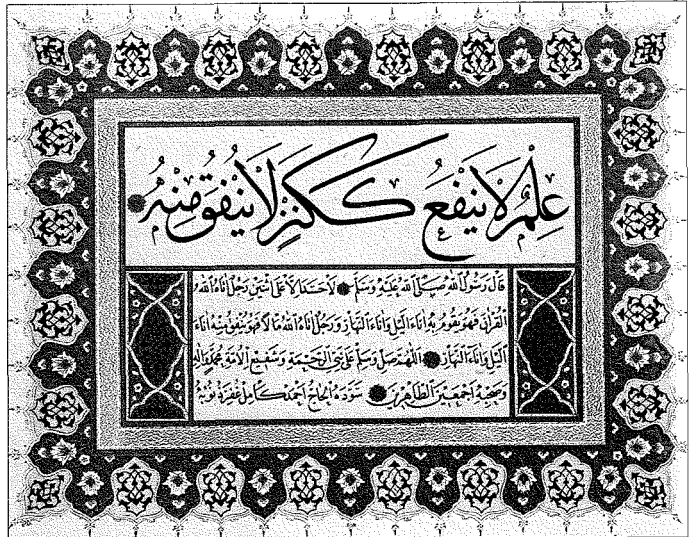 علم لا ينفع ككنز لا ينفق منه
قال رسول الله صلى الله عليه وسلم لا حسد الا على اثنتين رجل اتاه الله
القران فهو يقوم به اناء الليل واناء النهار ورجل اتاه الله مالا فهو ينفق منه اناء
الليل واناء النهار اللهم صل وسلم على نبي الرحمة وشفيع الامة محمد واله
وصحبه اجمعين الطاهرين سوده الحاج احمد كامل غفر ذنوبه